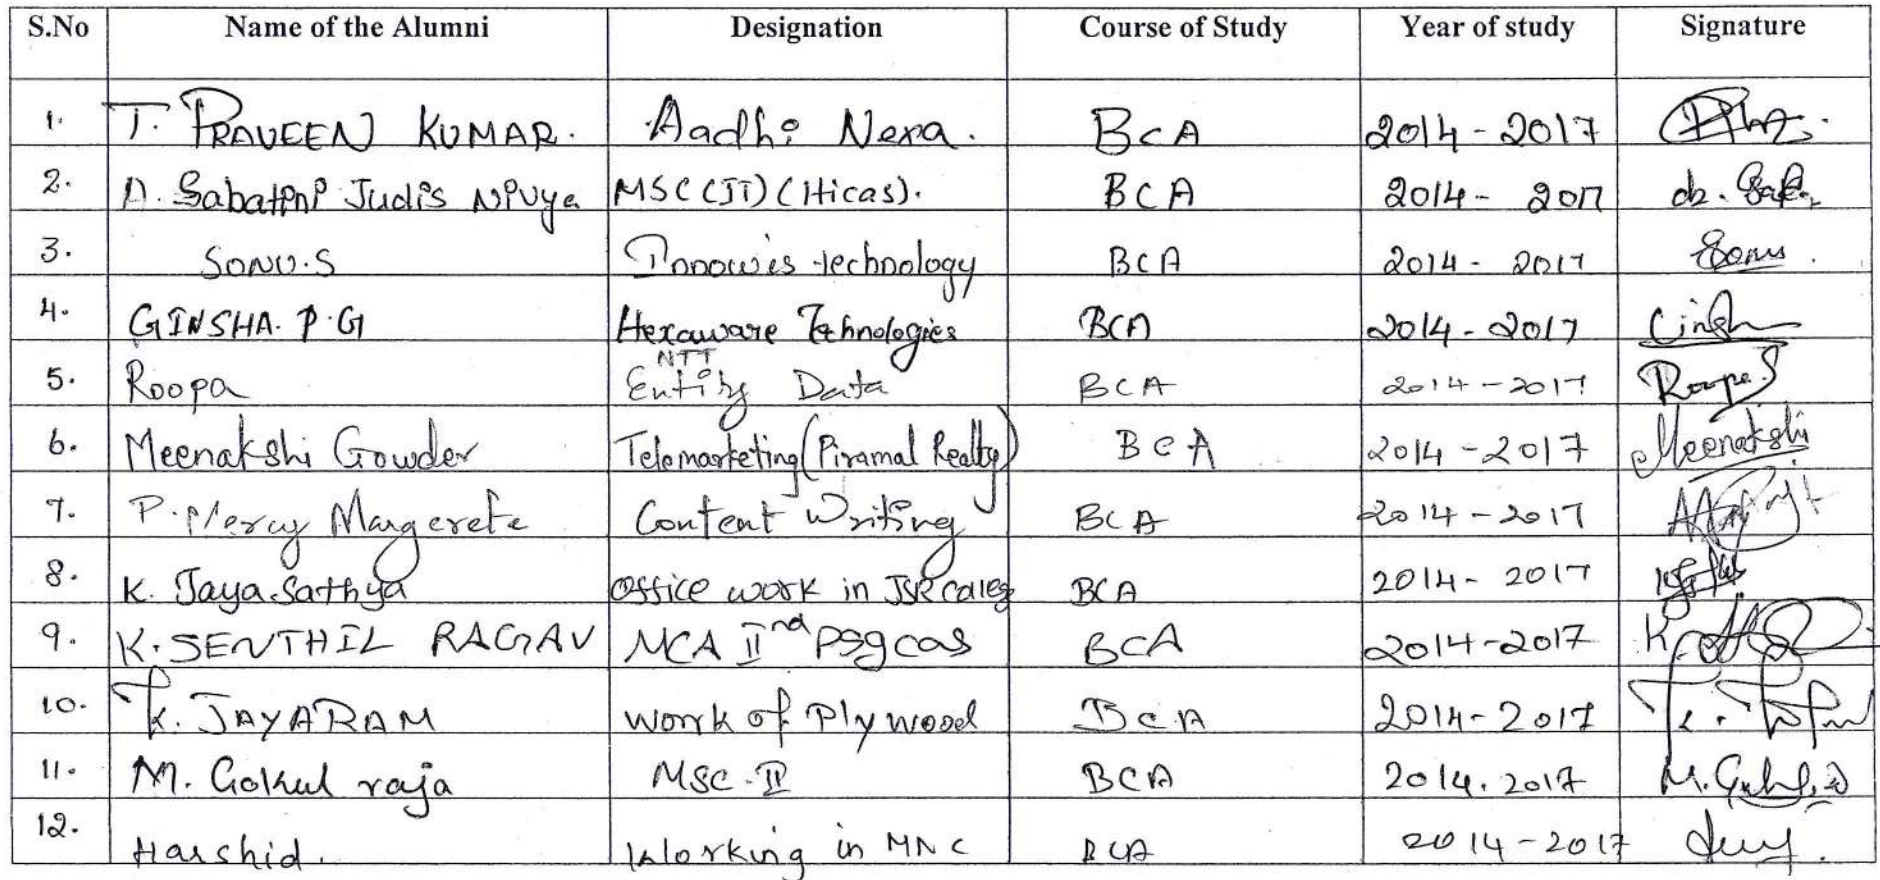 S.No Name of the Alumni Designation Course of Study Year of study Signature
1. T. PRAVEEN KUMAR. Aadhi Nexa. BCA 2014-2017
2. A. Sabathni Judis Nivya MSC(IT) (Hicas). BCA 2014- 2017
3. SONU.S technology BCA 2014- 2017 Sonu
4. GINSHA. P.G Hexaware Technologies BCA 2014-2017
NTT
5. Roopa Entity Data BCA 2014-2017 Roopa.S
6. Meenakshi Gowder Telemarketing(Piramal Realty) BCA 2014-2017 Meenakshi
7. P. Mercy Margerete Content Writing BCA 2014-2017
8. K. Jaya Sathya Office work in BCA 2014- 2017
9. K. SENTHIL RAGAV MCA IInd psgcas BCA 2014-2017 K.
10. K. JAYARAM work of Plywood BCA 2014-2017
11. M. Gokul raja MSC-II BCA 2014.2017
12. Harshid. Working in MNC BCA 2014-2017